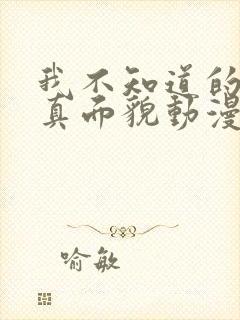 我不知道的
真而貌動漫
喻敏